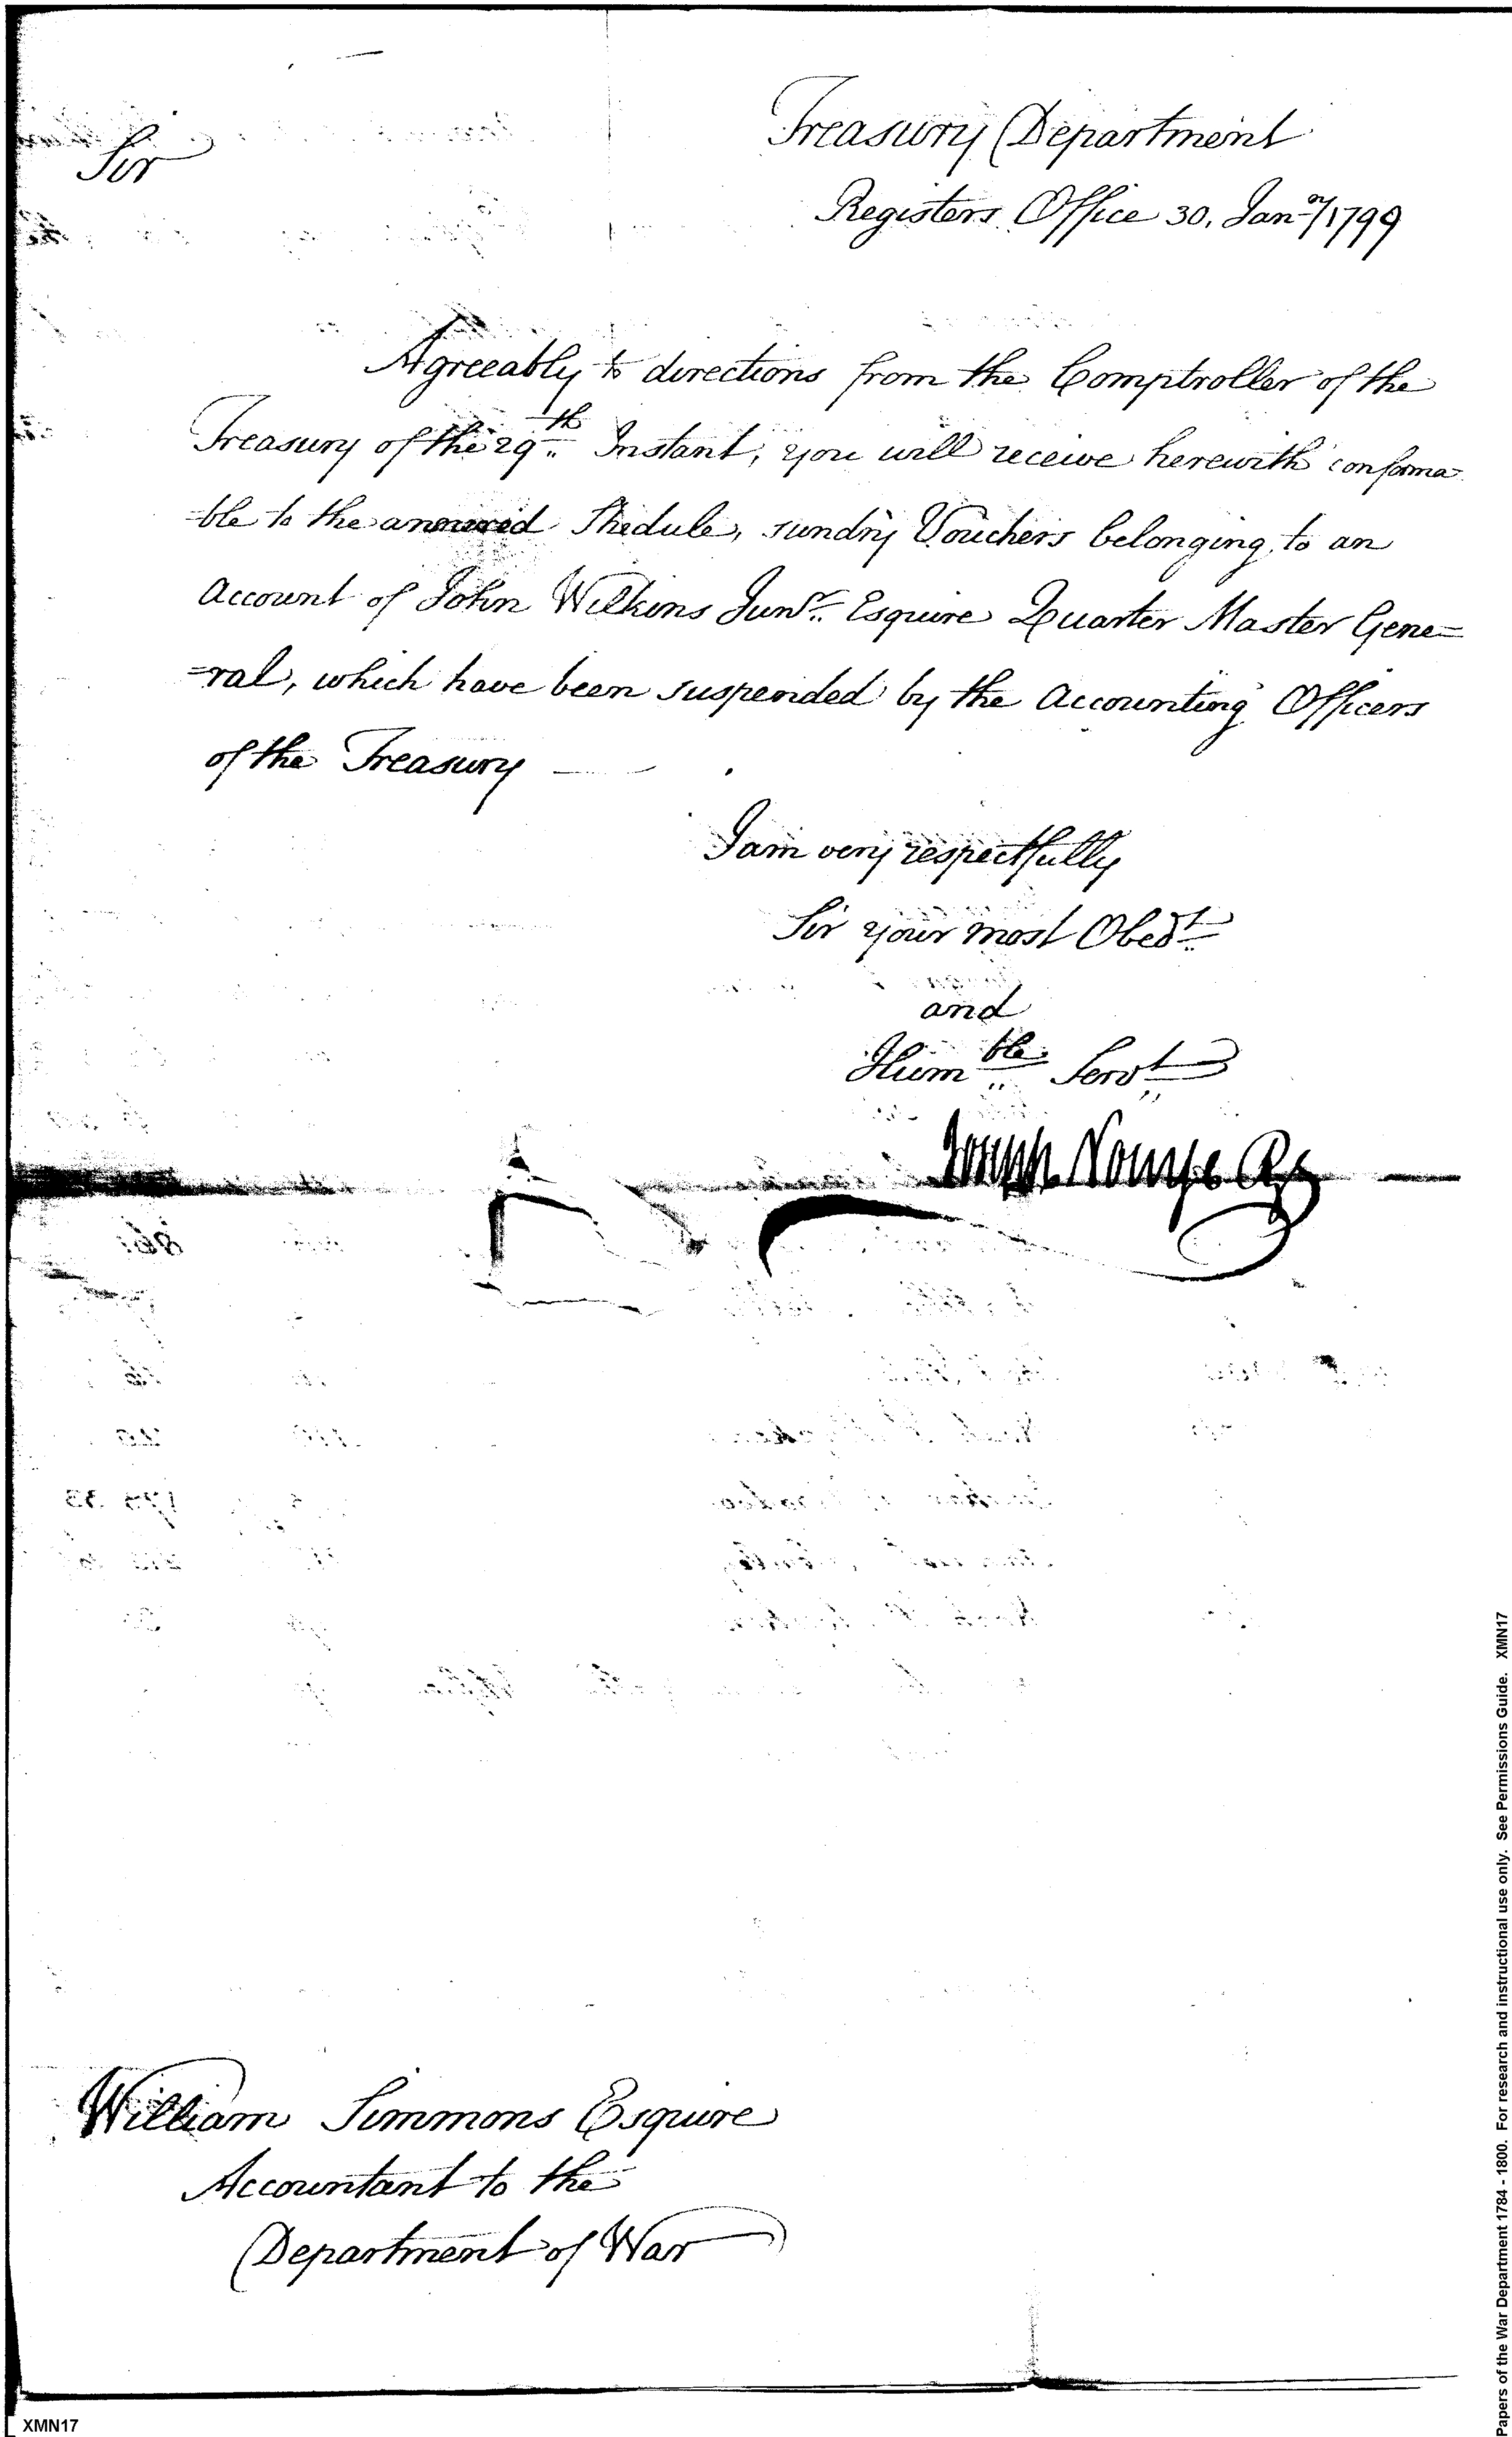 Treasury Department
Sir
Registers Office 30. Jan.ry 1799
Agreeably to directions from the Comptroller of the
Treasury of the 29th Instant, you will receive herewith conforma-
-ble to the annexed Shedule, sundry Vouchers belonging to an
account of John Wilkins Junr. Esquire Quarter Master Gene=
=ral, which have been suspended by the Accounting Officers
of the Treasury —
I am very respectfully
Sir your most Obedt
and
Humble Servt
Joseph Nourse Rg
William Simmons Esquire
Accountant to the
Department of War
XMN17
Papers of the War Department 1784 - 1800. For research and instructional use only. See Permissions Guide. XMN17